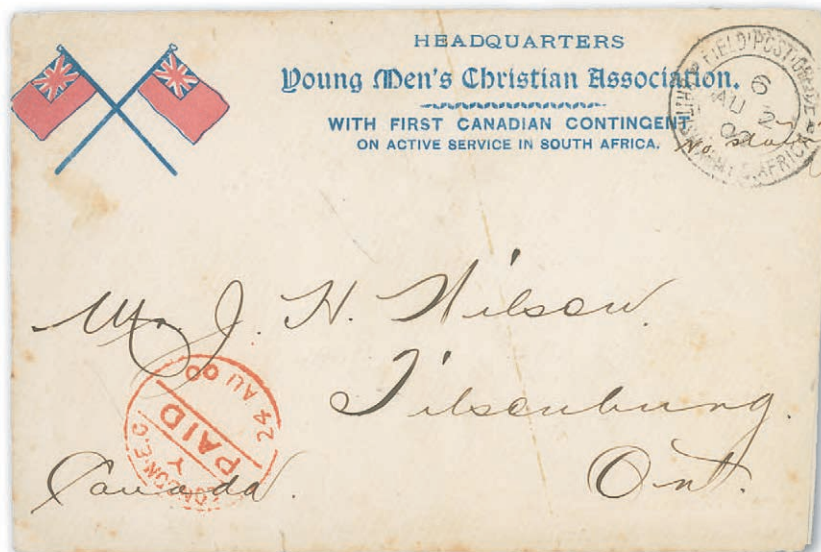 HEADQUARTERS
Young Men's Christian Association.
WITH FIRST CANADIAN CONTINGENT
ON ACTIVE SERVICE IN SOUTH AFRICA.
FIELD POST OFFICE
BRITISH ARMY S. AFRICA
6
AU 2
00
No
Mr. J. H. Wilson.
Tilsonburg.
Ont.
Canada.
LONDON.E.C
Y
PAID
24 AU 00